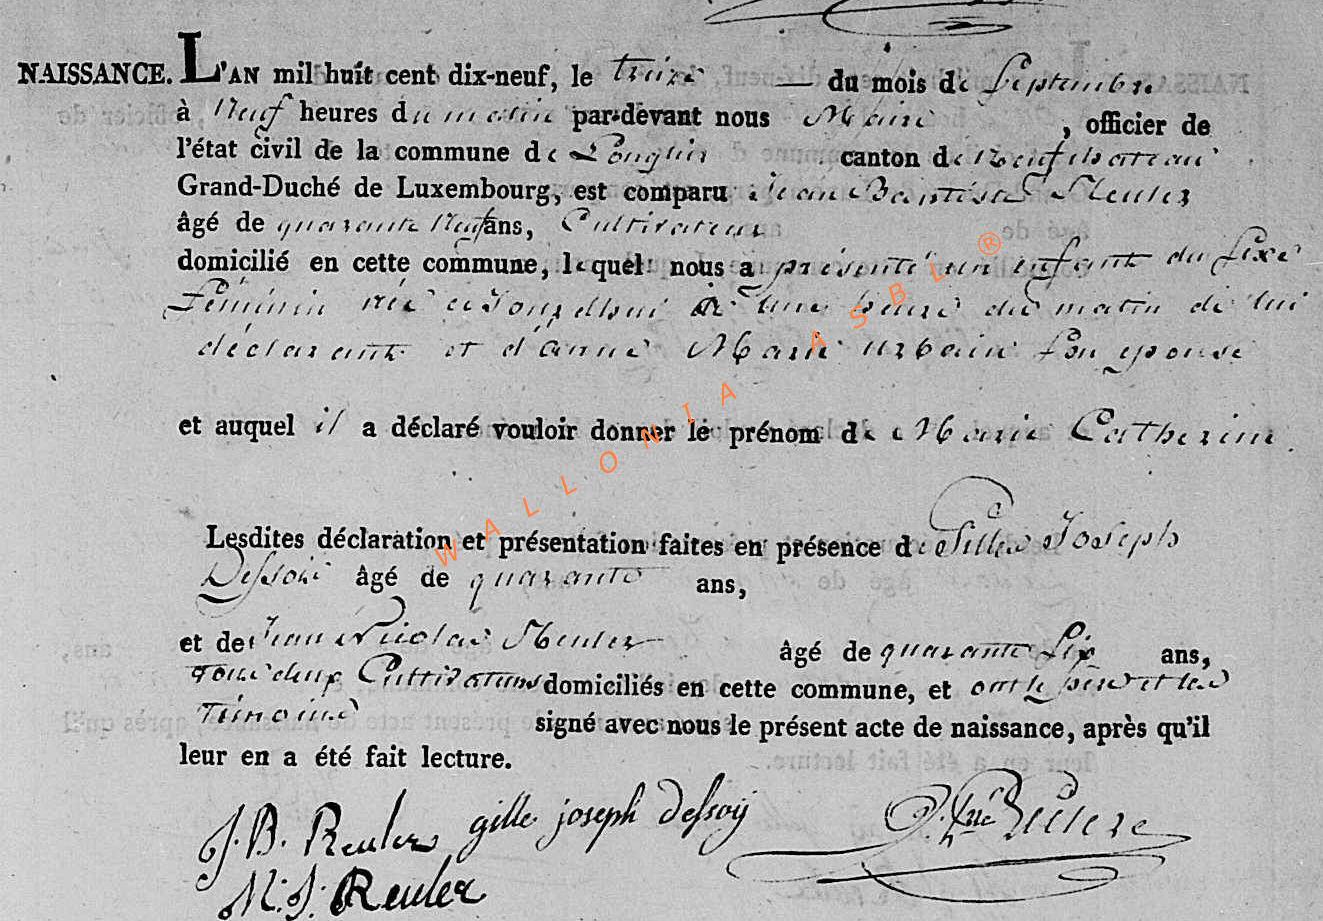 NAISSANCE. L'AN mil huit cent dix-neuf, le treize du mois de Septembre
à Neuf heures du matin par-devant nous Maire , officier de
l'état civil de la commune de Longlier canton de Neufchateau
Grand-Duché de Luxembourg, est comparu Jean Baptiste Reuler
âgé de quarante Neuf ans, Cultivateur
domicilié en cette commune, lequel nous a présenté un enfant du sexe
féminin née aujourdhui à une heure du matin de lui
déclarant et d'anne Marie urbain son epouse
et auquel il a déclaré vouloir donner le prénom de Marie Catherine
Lesdites déclaration et présentation faites en présence de Gilles Joseph
Dessoi âgé de quarante ans,
et de Jean Nicolas Reuler âgé de quarante six ans,
Tous deux Cultivateurs domiciliés en cette commune, et ont le père et les
Témoins signé avec nous le présent acte de naissance, après qu'il
leur en a été fait lecture.
J. B. Reuler gille joseph Dessoÿ
N. J. Reuler
WALLONIA ASBL ®